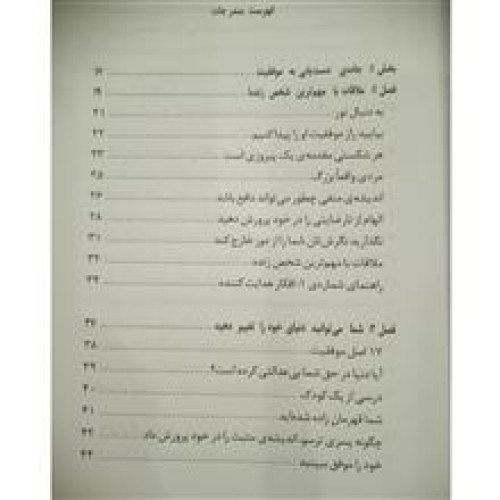 فهرست مندرجات
بخش ۱: جاده‌ی دست‌یابی به موفقیت ۱۷
فصل ۱: ملاقات با مهم‌ترین شخص زنده! ۱۹
به دنبال نور ۲۱
بیایید راز موفقیت او را پیدا کنیم ۲۲
هر شکستی مقدمه‌ی یک پیروزی است ۲۳
مردی واقعاً بزرگ ۲۵
اندیشه‌ی منفی چطور می‌تواند دافع باشد ۲۶
الهام از نارضایتی را در خود پرورش دهید ۲۸
نگذارید نگرش‌تان شما را از دور خارج کند ۳۱
ملاقات با مهم‌ترین شخص زنده ۳۲
راهنمای شماره‌ی ۱: افکار هدایت کننده ۳۴
فصل ۲: شما می‌توانید دنیای خود را تغییر دهید ۳۷
۱۷ اصل موفقیت ۳۸
آیا دنیا در حق شما بی‌عدالتی کرده است؟ ۳۹
درسی از یک کودک ۴۰
شما قهرمان زاده شده‌اید ۴۱
چگونه پسری ترسو، اندیشه‌ی مثبت را در خود پرورش داد ۴۲
خود را موفق ببینید ۴۴